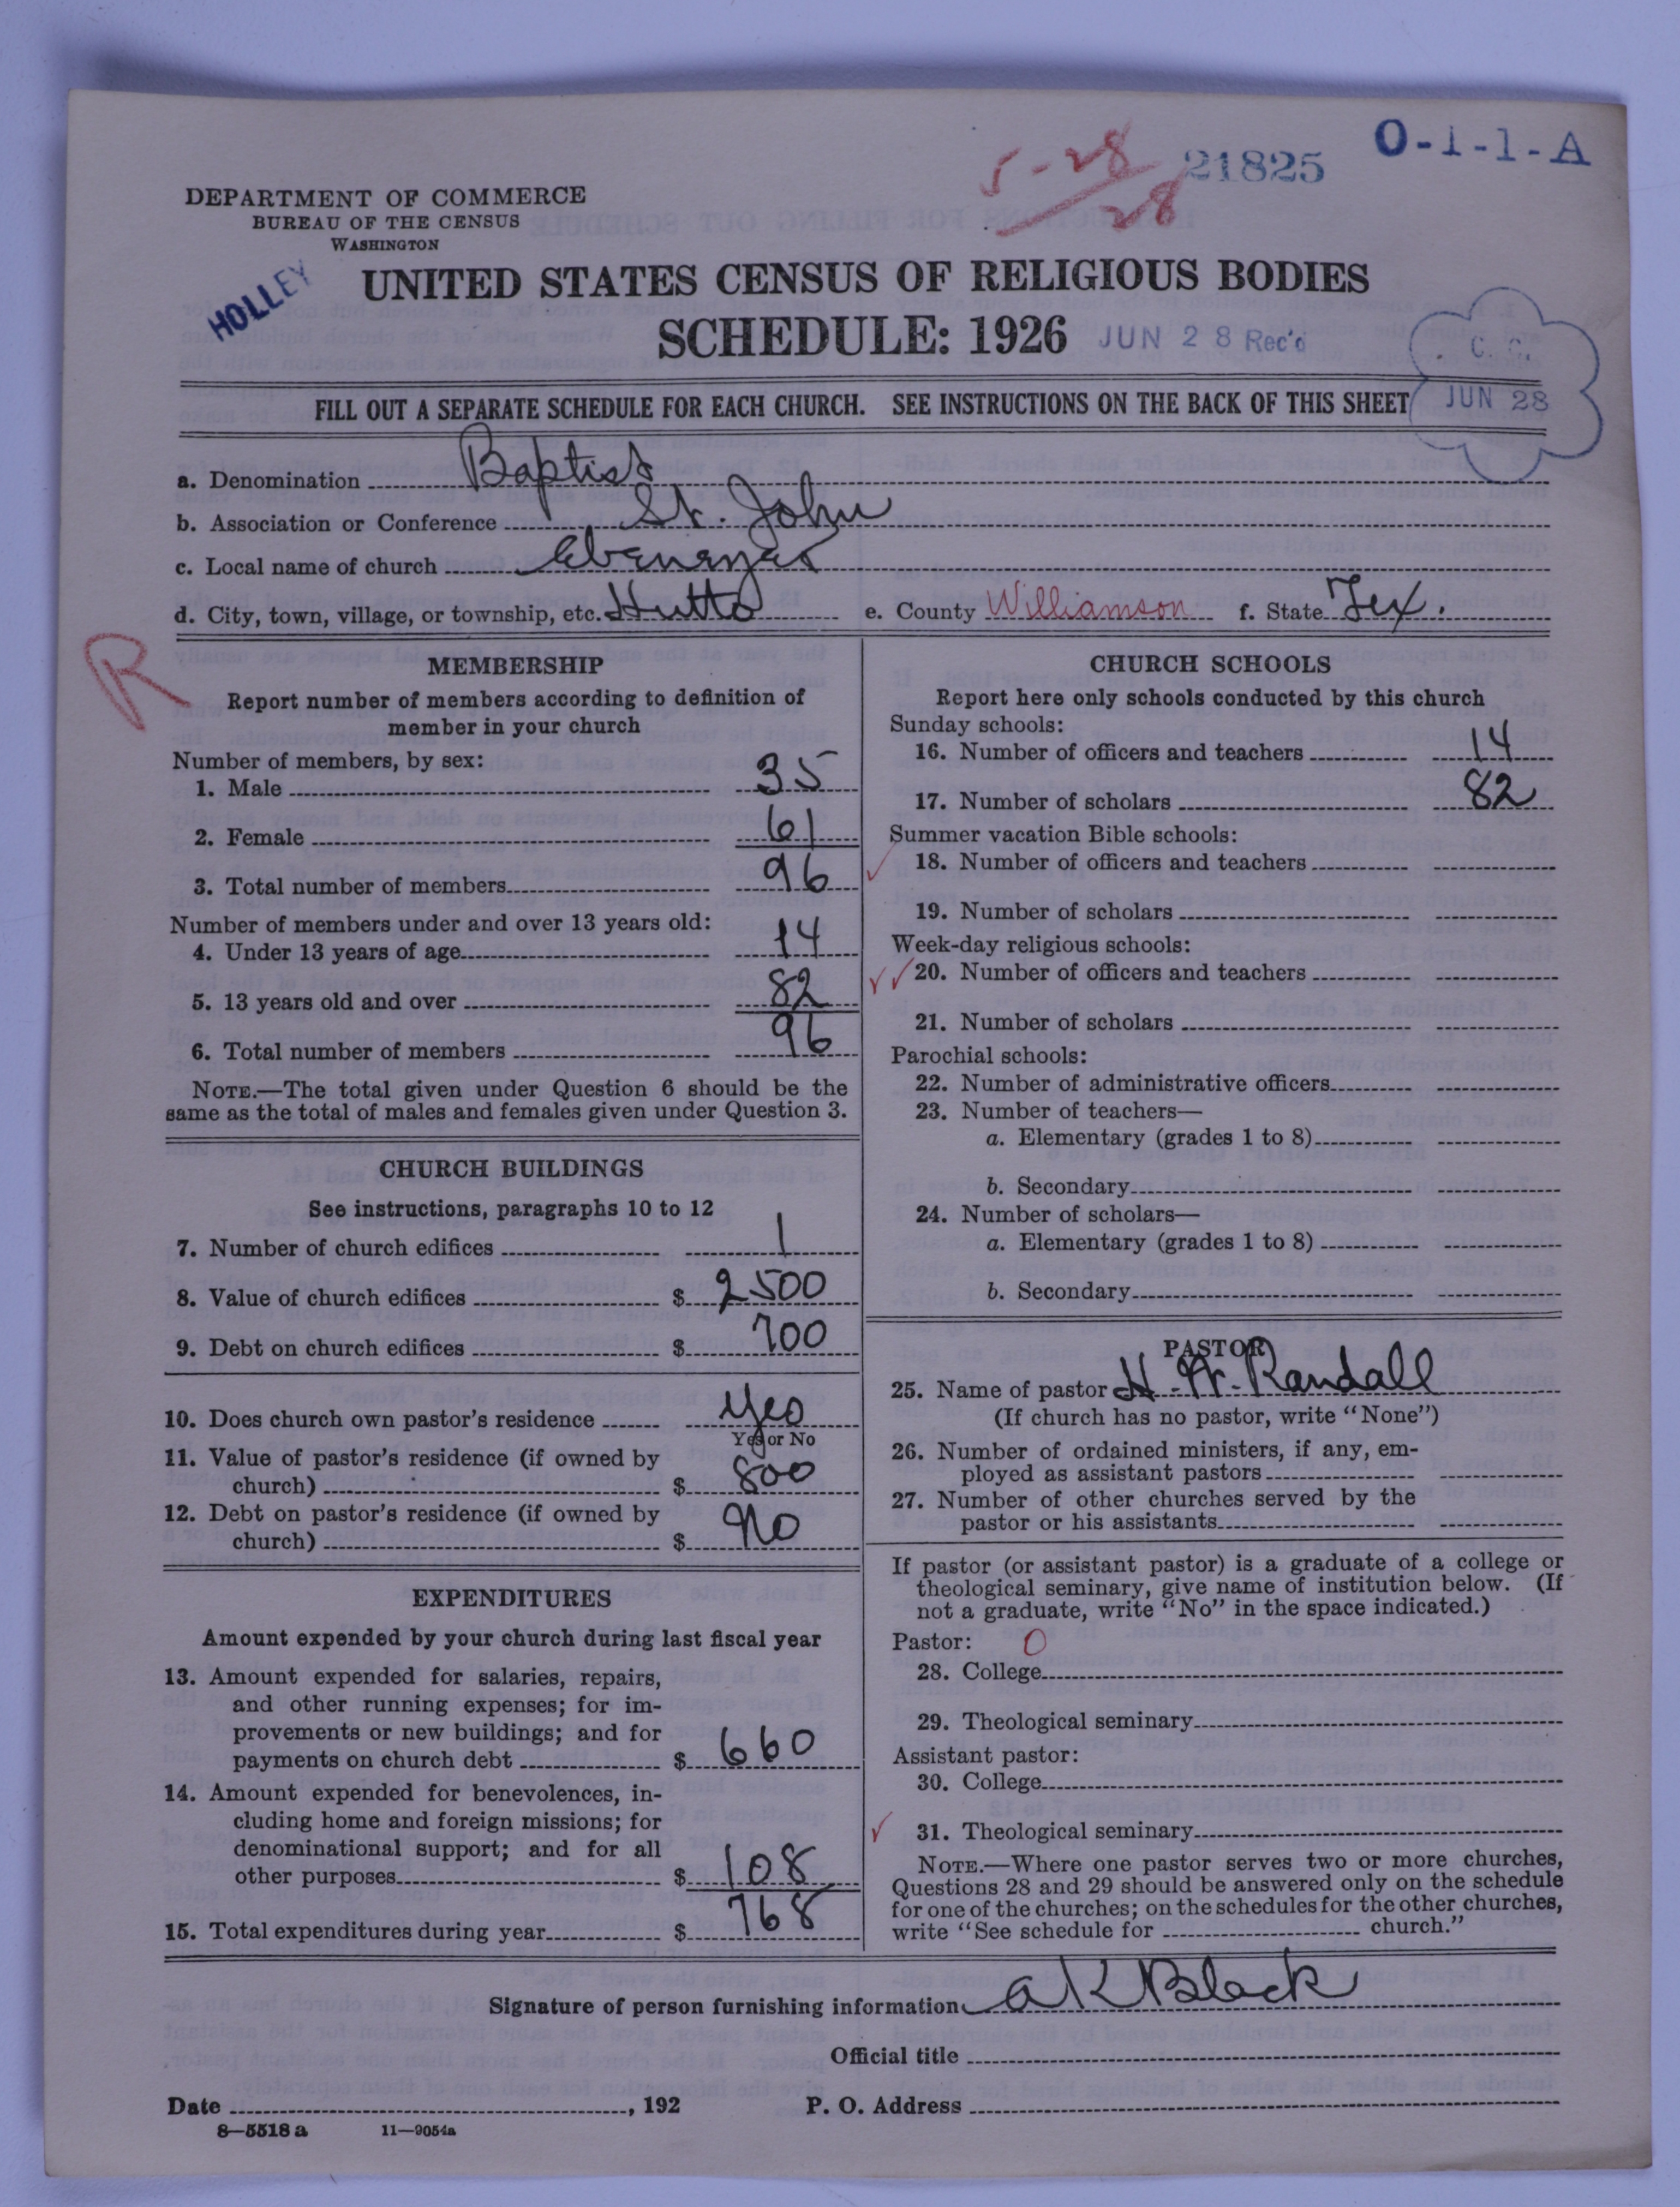 O-1-1-A
5-28
28
21825
DEPARTMENT OF COMMERCE
BUREAU OF THE CENSUS
WASHINGTON
HOLLEY
UNITED STATES CENSUS OF RELIGIOUS BODIES
SCHEDULE: 1926
JUN 28 Rec'd
JUN 28
FILL OUT A SEPARATE SCHEDULE FOR EACH CHURCH. SEE INSTRUCTIONS ON THE BACK OF THIS SHEET
a. Denomination Baptist
b. Association or Conference St. John
c. Local name of church Ebenezer
d. City, town, village, or township, etc. Hutto e. County Williamson f. State Tex.
R
MEMBERSHIP
Report number of members according to definition of
member in your church
Number of members, by sex:
1. Male 35
2. Female 61
3. Total number of members 96
Number of members under and over 13 years old:
4. Under 13 years of age 14
5. 13 years old and over 82
6. Total number of members 96
NOTE.—The total given under Question 6 should be the
same as the total of males and females given under Question 3.
CHURCH BUILDINGS
See instructions, paragraphs 10 to 12
7. Number of church edifices 1
8. Value of church edifices $ 2500
9. Debt on church edifices $ 700
10. Does church own pastor's residence Yes
Yes or No
11. Value of pastor's residence (if owned by
church) $ 800
12. Debt on pastor's residence (if owned by
church) $ no
EXPENDITURES
Amount expended by your church during last fiscal year
13. Amount expended for salaries, repairs,
and other running expenses; for im-
provements or new buildings; and for
payments on church debt $ 660
14. Amount expended for benevolences, in-
cluding home and foreign missions; for
denominational support; and for all
other purposes $ 108
15. Total expenditures during year $ 768
CHURCH SCHOOLS
Report here only schools conducted by this church
Sunday schools:
16. Number of officers and teachers 14
17. Number of scholars 82
Summer vacation Bible schools:
18. Number of officers and teachers
19. Number of scholars
Week-day religious schools:
20. Number of officers and teachers
21. Number of scholars
Parochial schools:
22. Number of administrative officers
23. Number of teachers—
a. Elementary (grades 1 to 8)
b. Secondary
24. Number of scholars—
a. Elementary (grades 1 to 8)
b. Secondary
PASTOR
25. Name of pastor H. W. Randall
(If church has no pastor, write "None")
26. Number of ordained ministers, if any, em-
ployed as assistant pastors
27. Number of other churches served by the
pastor or his assistants
If pastor (or assistant pastor) is a graduate of a college or
theological seminary, give name of institution below. (If
not a graduate, write "No" in the space indicated.)
Pastor: 0
28. College
29. Theological seminary
Assistant pastor:
30. College
31. Theological seminary
NOTE.—Where one pastor serves two or more churches,
Questions 28 and 29 should be answered only on the schedule
for one of the churches; on the schedules for the other churches,
write "See schedule for church."
Signature of person furnishing information A K Black
Official title
Date , 192 P. O. Address
8—5518 a 11—9054a